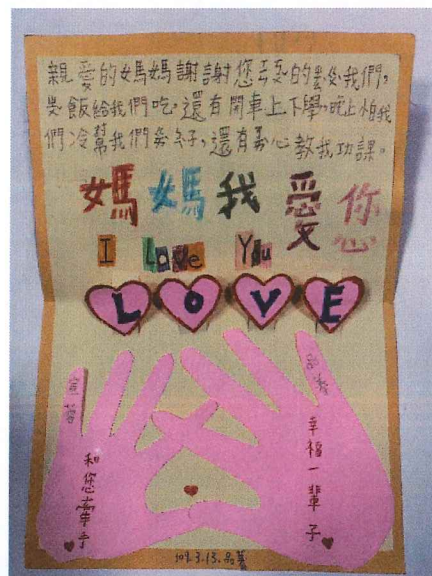 親愛的媽媽謝謝您的我們,
飯給我們吃,還有開車上下學,晚上怕我
們冷幫我們,還有心教我功課。
媽媽我愛您
I Love You
LOVE
品蓁
和您牽手
幸福一輩子
109.3.13.品蓁